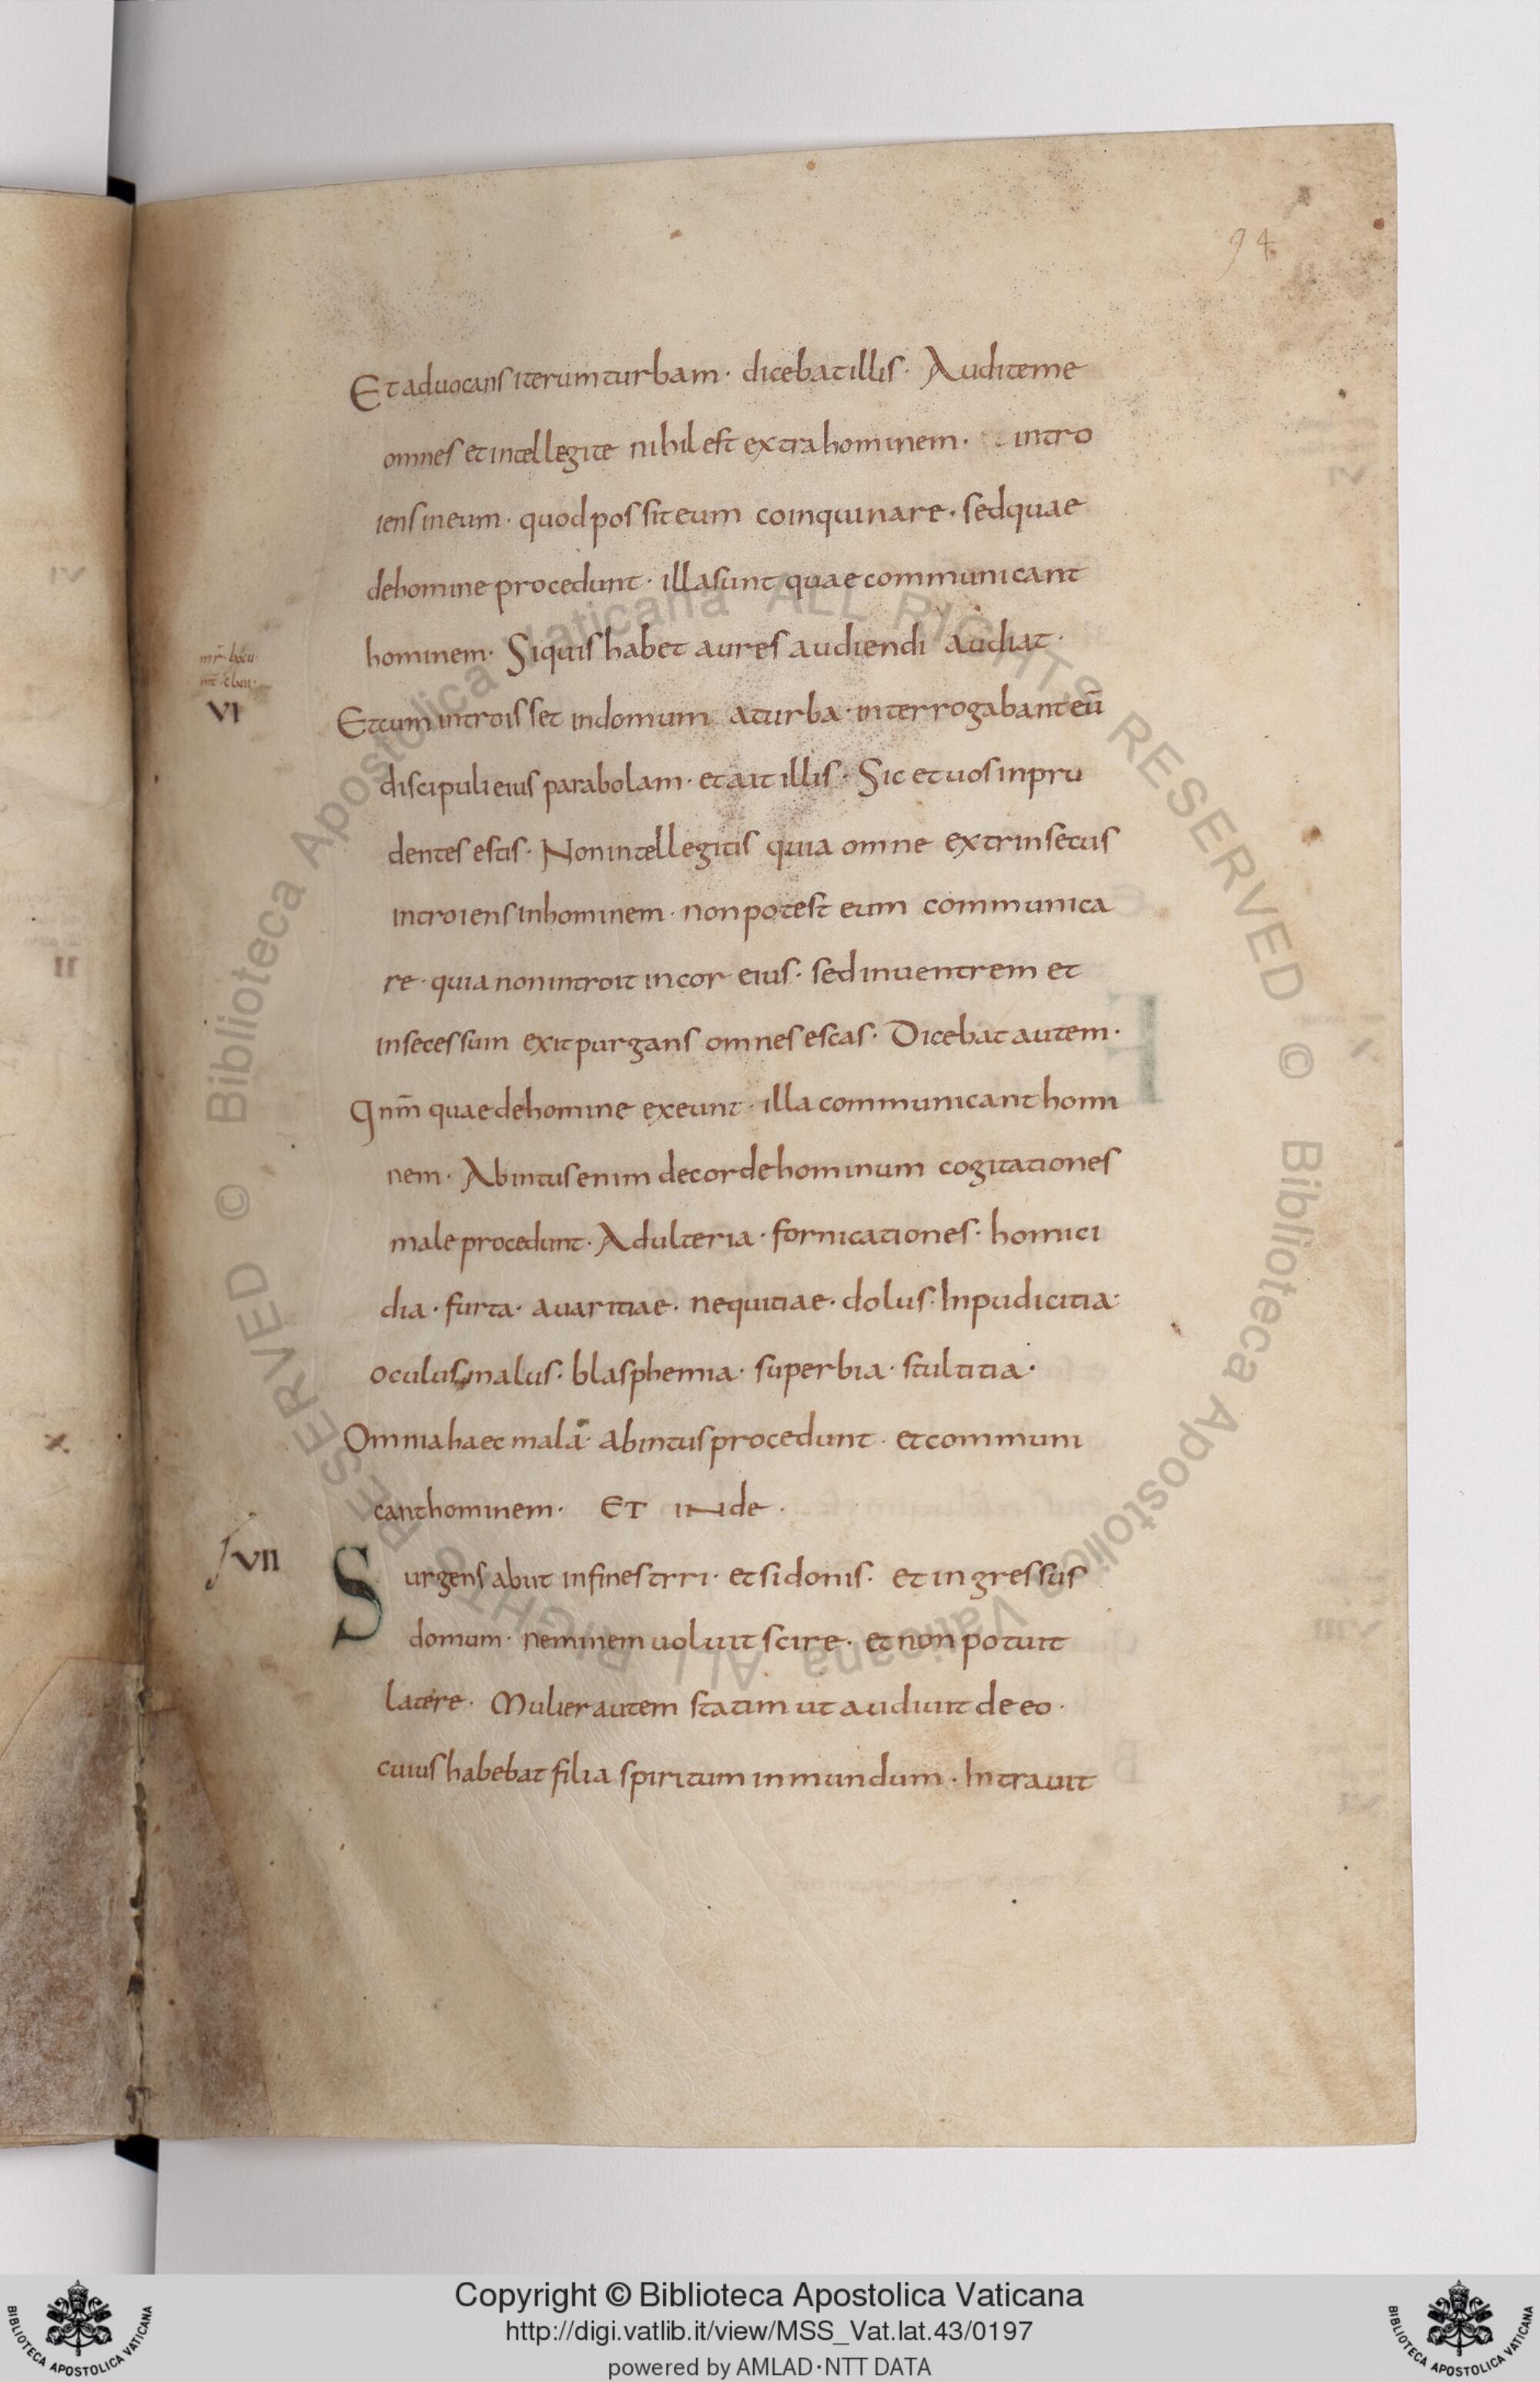 94
Et aduocans iterum turbam · dicebat illis · Audite me
omnes et intellegite nihil est extra hominem · intro
iens in eum · quod possit eum coinquinare · sed quae
de homine procedunt · illa sunt quae communicant
hominem · Si quis habet aures audiendi audiat ·
VI
Et cum introisset in domum a turba · interrogabant eū
discipuli eius parabolam · et ait illis · Sic et uos inpru
dentes estis · Non intellegitis quia omne extrinsecus
introiens in hominem · non potest eum communica
re · quia non introit in cor eius · sed in uentrem et
in secessum exit purgans omnes escas · Dicebat autem ·
Qnm̄ quae de homine exeunt · illa communicant homi
nem · Ab intus enim de corde hominum cogitationes
male procedunt · Adulteria · fornicationes · homici
dia · furta · auaritiae · nequitiae · dolus · Inpudicitia ·
oculus malus · blasphemia · superbia · stultitia ·
Omnia haec mala · ab intus procedunt · et communi
cant hominem · ET INde ·
VII
Surgens abiit in fines tyri · et sidonis · et ingressus
domum · neminem uoluit scire · et non potuit
latere · Mulier autem statim ut audiuit de eo ·
cuius habebat filia spiritum inmundum · Intrauit
Copyright © Biblioteca Apostolica Vaticana
http://digi.vatlib.it/view/MSS_Vat.lat.43/0197
powered by AMLAD·NTT DATA
BIBLIOTECA APOSTOLICA VATICANA
BIBLIOTECA APOSTOLICA VATICANA
© Biblioteca Apostolica Vaticana ALL RIGHTS RESERVED © Biblioteca Apostolica Vaticana ALL RIGHTS RESERVED